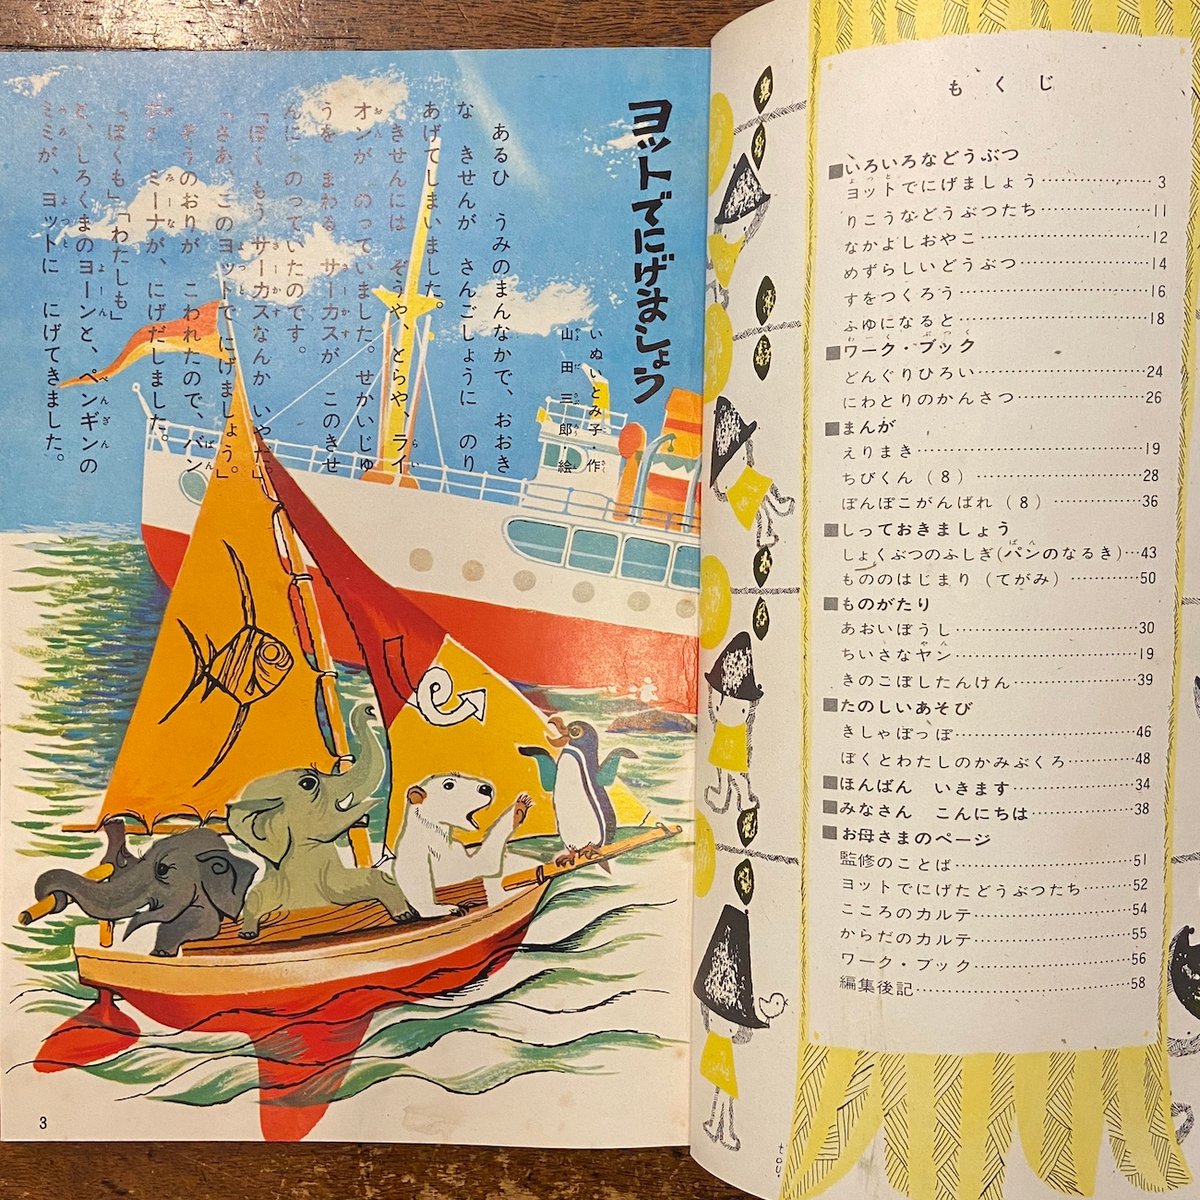 ヨットでにげましょう
いぬいとみ子 作
山田三郎 絵
あるひ うみのまんなかで、おおき
な きせんが さんごしょうに のり
あげてしまいました。
きせんには ぞうや、とらや、ライ
オンが のっていました。せかいじゅ
うを まわる サーカスが このきせ
んに のっていたのです。
「ぼく もう サーカスなんか いやだ」
「さあ、このヨットで にげましょう。」
ぞうのおりが こわれたので、バン
ボと ミーナが、にげだしました。
「ぼくも」「わたしも」
と、しろくまのヨーンと、ペンギンの
ミミが、ヨットに にげてきました。
3
もくじ
■いろいろなどうぶつ
ヨットでにげましょう 3
りこうなどうぶつたち 11
なかよしおやこ 12
めずらしいどうぶつ 14
すをつくろう 16
ふゆになると 18
■ワーク・ブック
どんぐりひろい 24
にわとりのかんさつ 26
■まんが
えりまき 19
ちびくん(8) 28
ぽんぽこがんばれ(8) 36
■しっておきましょう
しょくぶつのふしぎ(パンのなるき) 43
もののはじまり(てがみ) 50
■ものがたり
あおいぼうし 30
ちいさなヤン 19
きのこぼしたんけん 39
■たのしいあそび
きしゃぽっぽ 46
ぼくとわたしのかみぶくろ 48
■ほんばん いきます 34
■みなさん こんにちは 38
■お母さまのページ
監修のことば 51
ヨットでにげたどうぶつたち 52
こころのカルテ 54
からだのカルテ 55
ワーク・ブック 56
編集後記 58
tou.